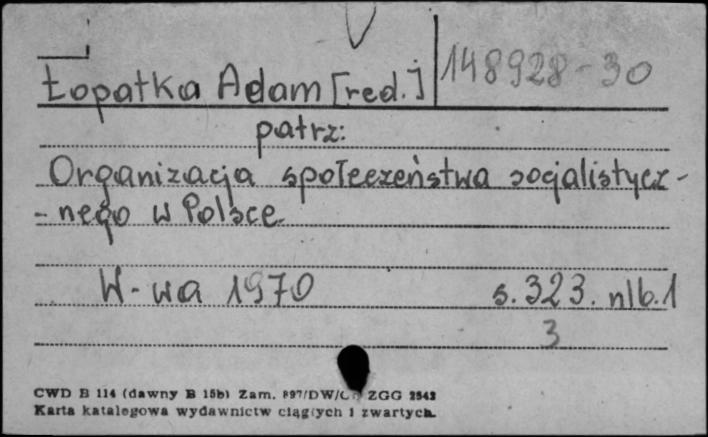 Łopatka Adam [red.] 148928-30
patrz:
Organizacja społeczeństwa socjalistycz-
-nego w Polsce.
W-wa 1970 s. 323. nlb. 1
3
CWD B 114 (dawny B 15b) Zam. 897/DW/ ZGG 2542
Karta katalogowa wydawnictw ciągłych i zwartych.